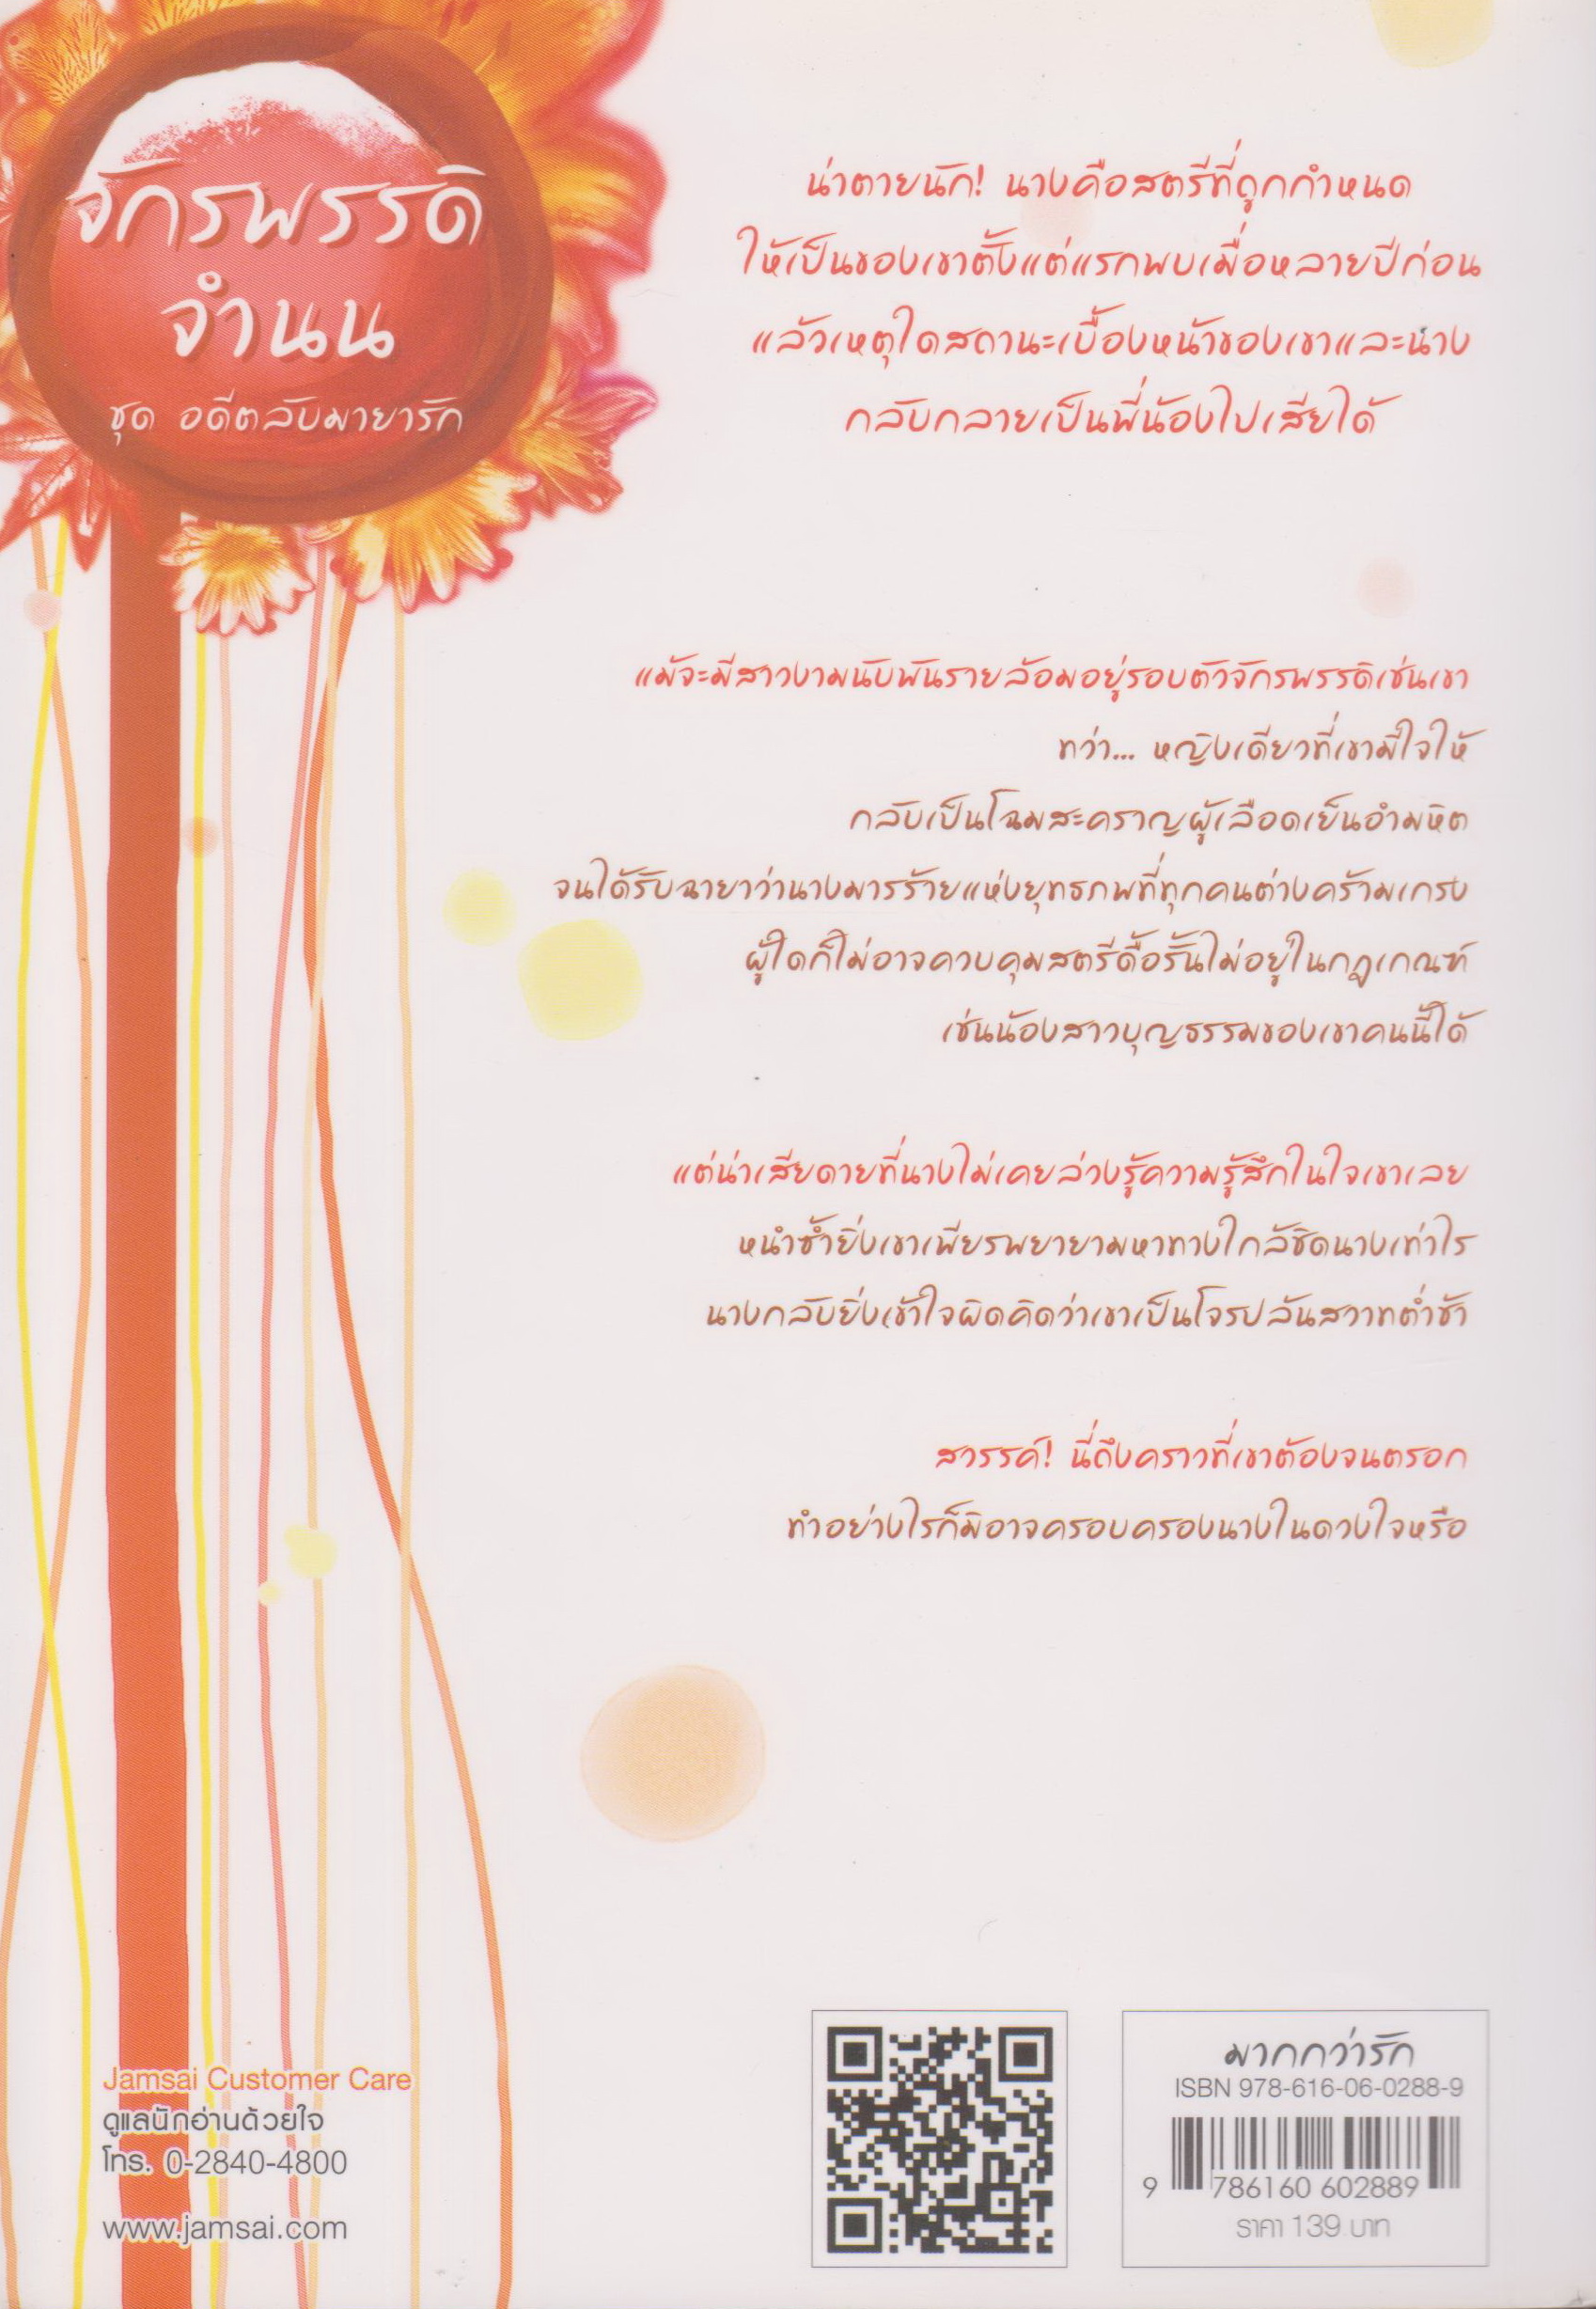 จักรพรรดิ
จำนน
ชุด อดีตลับมายารัก
น่าตายนัก! นางคือสตรีที่ถูกกำหนด
ให้เป็นของเขาตั้งแต่แรกพบเมื่อหลายปีก่อน
แล้วเหตุใดสถานะเบื้องหน้าของเขาและนาง
กลับกลายเป็นพี่น้องไปเสียได้
แม้จะมีสาวงามนับพันรายล้อมอยู่รอบตัวจักรพรรดิเช่นเขา
ทว่า... หญิงเดียวที่เขามีใจให้
กลับเป็นโฉมสะคราญผู้เลือดเย็นอำมหิต
จนได้รับฉายาว่านางมารร้ายแห่งยุทธภพที่ทุกคนต่างคร้ามเกรง
ผู้ใดก็ไม่อาจควบคุมสตรีดื้อรั้นไม่อยู่ในกฎเกณฑ์
เช่นน้องสาวบุญธรรมของเขาคนนี้ได้
แต่น่าเสียดายที่นางไม่เคยล่วงรู้ความรู้สึกในใจเขาเลย
หนำซ้ำยิ่งเขาเพียรพยายามหาทางใกล้ชิดนางเท่าไร
นางกลับยิ่งเข้าใจผิดคิดว่าเขาเป็นโจรปล้นสวาทต่ำช้า
สวรรค์! นี่ถึงคราวที่เขาต้องจนตรอก
ทำอย่างไรก็มิอาจครอบครองนางในดวงใจหรือ
Jamsai Customer Care
ดูแลนักอ่านด้วยใจ
โทร. 0-2840-4800
www.jamsai.com
มากกว่ารัก
ISBN 978-616-06-0288-9
9 786160 602889
ราคา 139 บาท